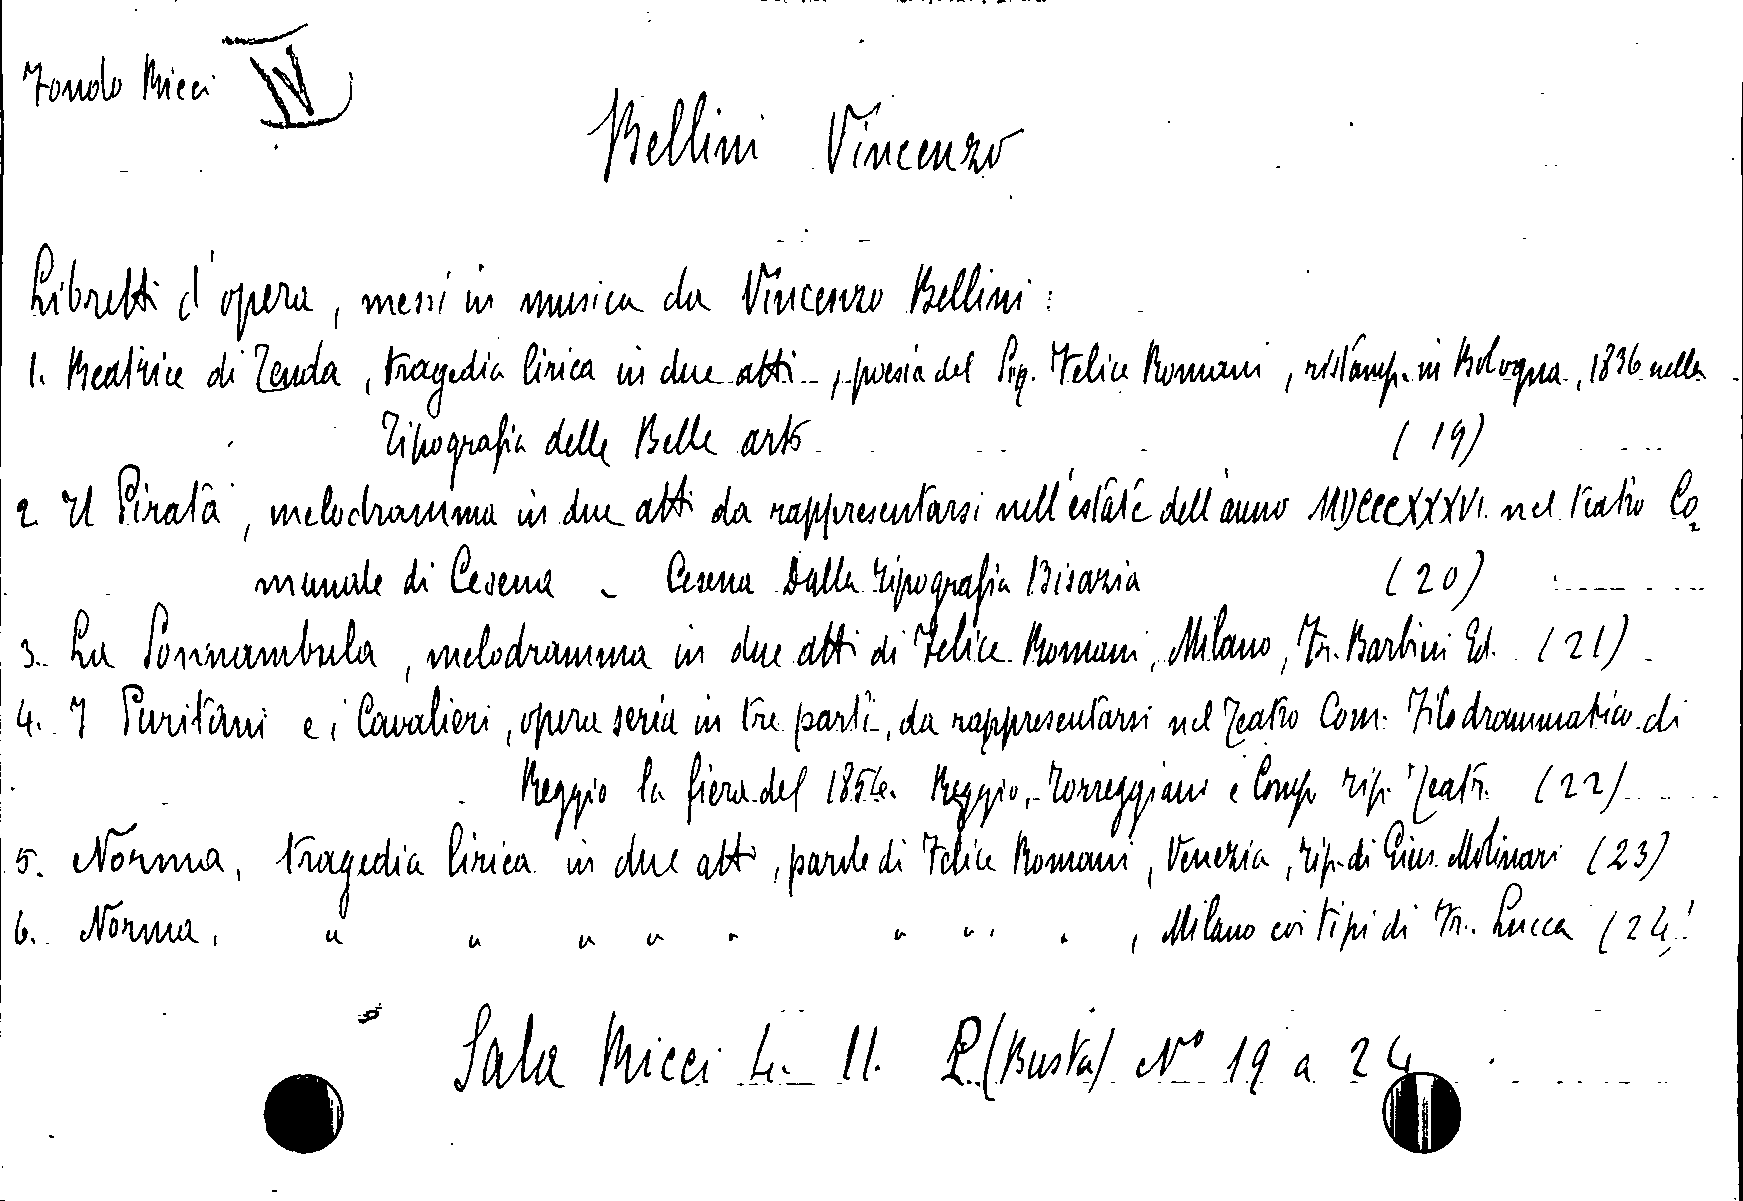 Fondo Ricci IV
Bellini Vincenzo
Libretti d'opera, messi in musica da Vincenzo Bellini:
1. Beatrice di Tenda, tragedia lirica in due atti, poesia del Sig. Felice Romani, ristamp. in Bologna, 1836 nella
Tipografia delle Belle arti (19)
2 Il Pirata, melodramma in due atti da rappresentarsi nell'estate dell'anno MDCCCXXXVI. nel teatro Co=
munale di Cesena - Cesena Dalla tipografia Bisazia (20)
3. La Sonnambula, melodramma in due atti di Felice Romani, Milano, Fr. Barbini Ed. (21)
4. I Puritani e i Cavalieri, opera seria in tre parti, da rappresentarsi nel Teatro Com. Filodrammatico di
Reggio la fiera del 1854. Reggio, Torreggiani e Comp. tip. Teatr. (22)
5. Norma, tragedia lirica in due atti, parole di Felice Romani, Venezia, tip. di Gius. Molinari (23)
6. Norma, " " " " " " " " , Milano coi tipi di Fr. Lucca (24)
Sala Ricci L. 11. P. (Busta) N° 19 a 24